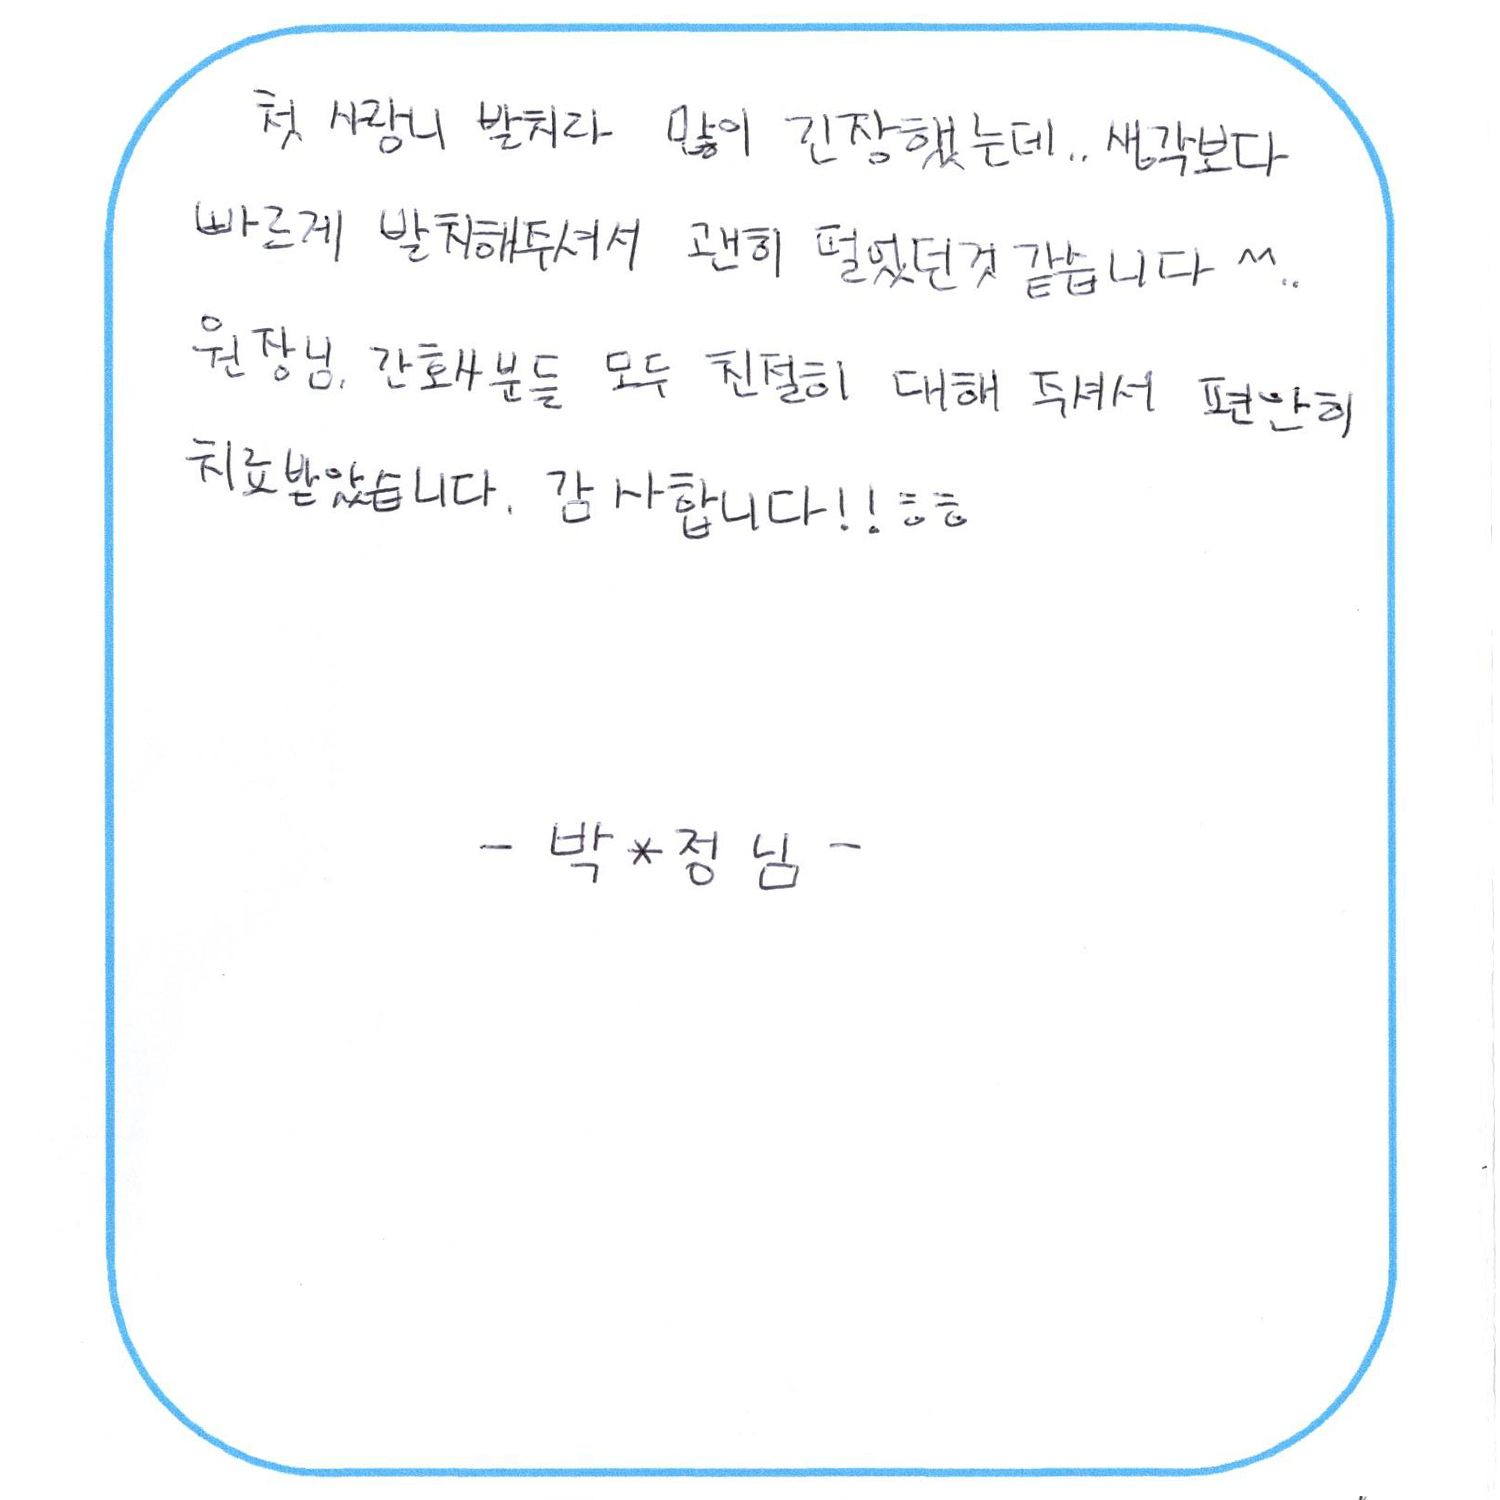 첫 사랑니 발치라 많이 긴장했는데.. 생각보다
빠르게 발치해주셔서 괜히 떨었던것 같습니다 ^^..
원장님, 간호사분들 모두 친절히 대해 주셔서 편안히
치료받았습니다. 감사합니다!! ㅎㅎ
- 박*정 님 -